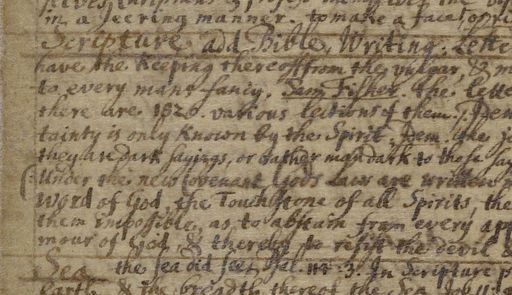 in a Jeering manner. to make a face,
Scripture add Bible, Writing. Lette
have the keeping thereof from the vulgar, & m
to every mans fancy. Sam Fisher. The lette
there are 1820. various lections of them. Idem
tainty is only known by the Spirit. Idem. the
they are dark sayings, or rather man dark to those say
Under the new covenant Gods Law are written
Word of God, the Touchstone of all Spirits, the
them impossible, as to abstain from every app
mour of God, & thereby to resist the devil &
Sea the sea did see, Psal. 3. In Scripture
Earth & the breadth thereof the Sea